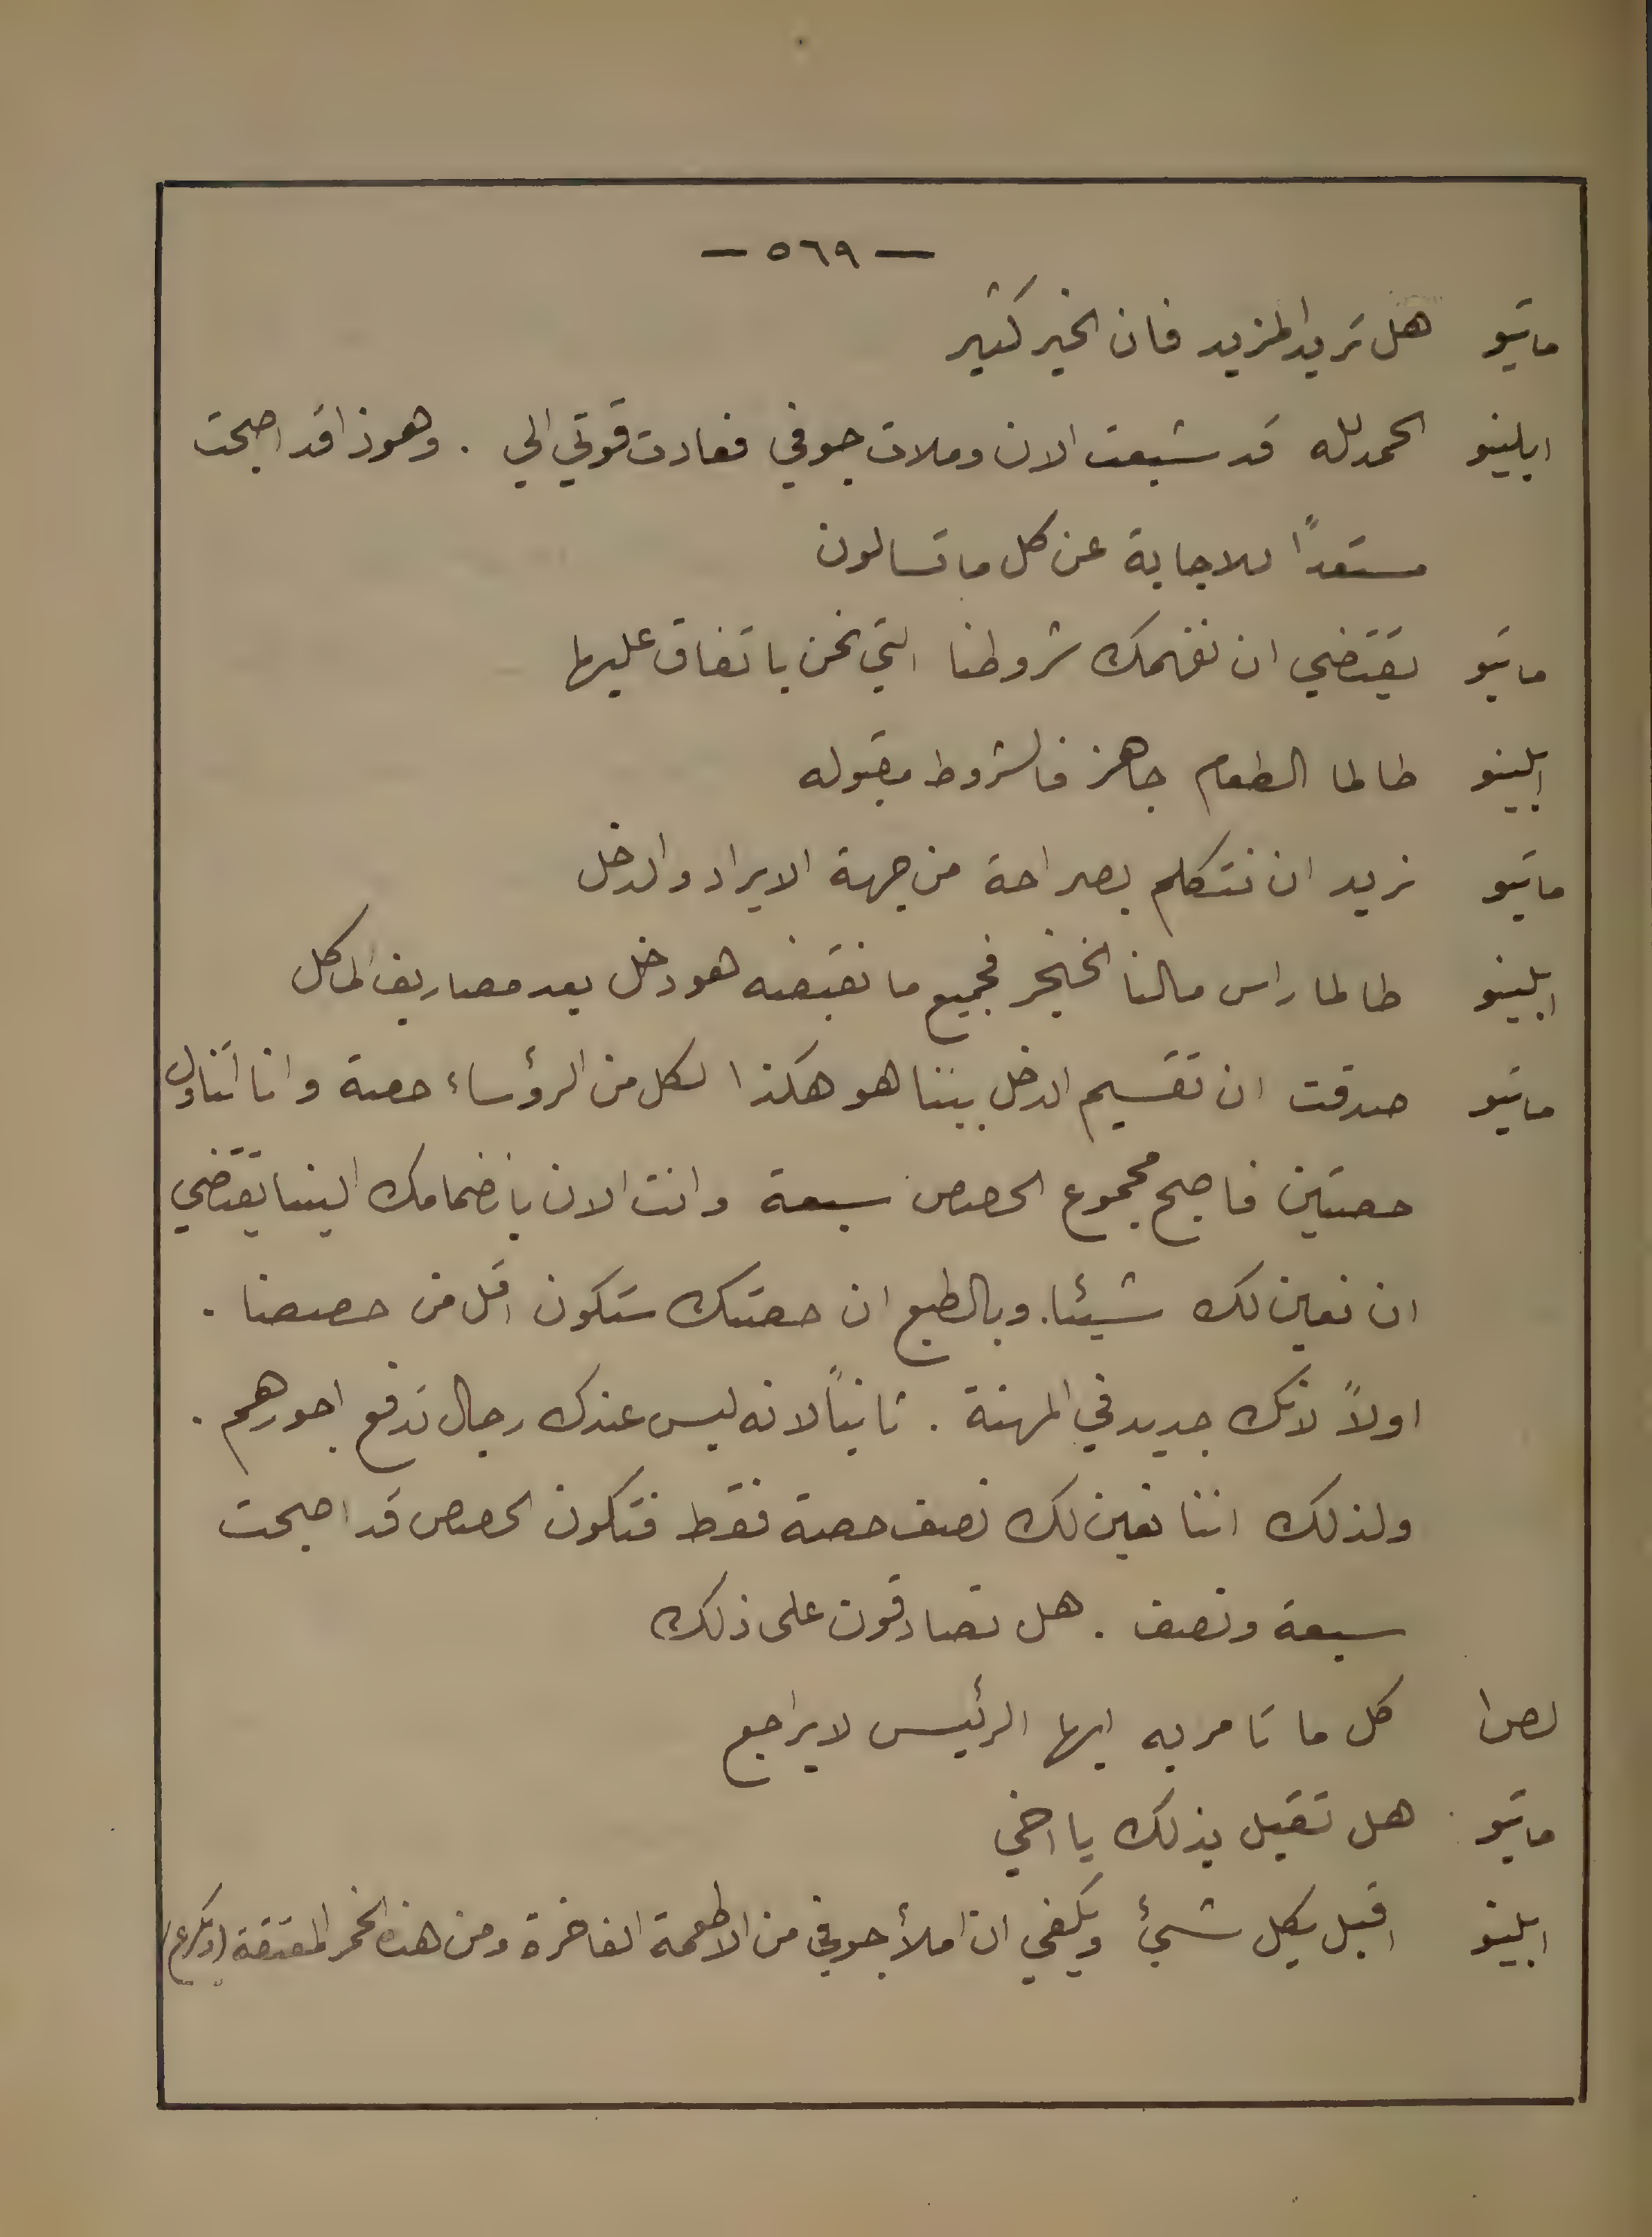 — ٥٦٩ —
ماتيو هل تريد المزيد فان الخير كثير
ابلينو الحمد لله قد شبعت الان وملات جوفي فعادت قوتي الي . وهوذا قد اصبحت
مستعداً للاجابة عن كل ما تسالون
ماتيو يقتضي ان نفهمك شروطنا التي نحن باتفاق عليها
ابلينو طالما الطعام جاهز فالشروط مقبوله
ماتيو نريد ان نتكلم بصراحة من جهة الايراد والدخل
ابلينو طالما راس مالنا الخنجر فجميع ما نقبضه هو دخل بعد مصاريف الماكل
ماتيو صدقت ان تقسيم الدخل بيننا هو هكذا لكل من الرؤساء حصة وانا اتناول
حصتين فاصبح مجموع الحصص سبعة وانت الان بانضمامك الينا يقتضي
ان نعين لك شيئا . وبالطبع ان حصتك ستكون اقل من حصصنا .
اولاً لانك جديد في المهنة . ثانياً لانه ليس عندك رجال تدفع اجورهم .
ولذلك اننا نعين لك نصف حصة فقط فتكون الحصص قد اصبحت
سبعة ونصف . هل تصادقون على ذلك
لص١ كل ما تامر به ايها الرئيس لا يراجع
ماتيو هل تقبل بذلك يا اخي
ابلينو اقبل بكل شيئ ويكفي ان املأ جوفي من الاطعمة الفاخرة ومن هذه الخمر المعتقة (ويكرع)